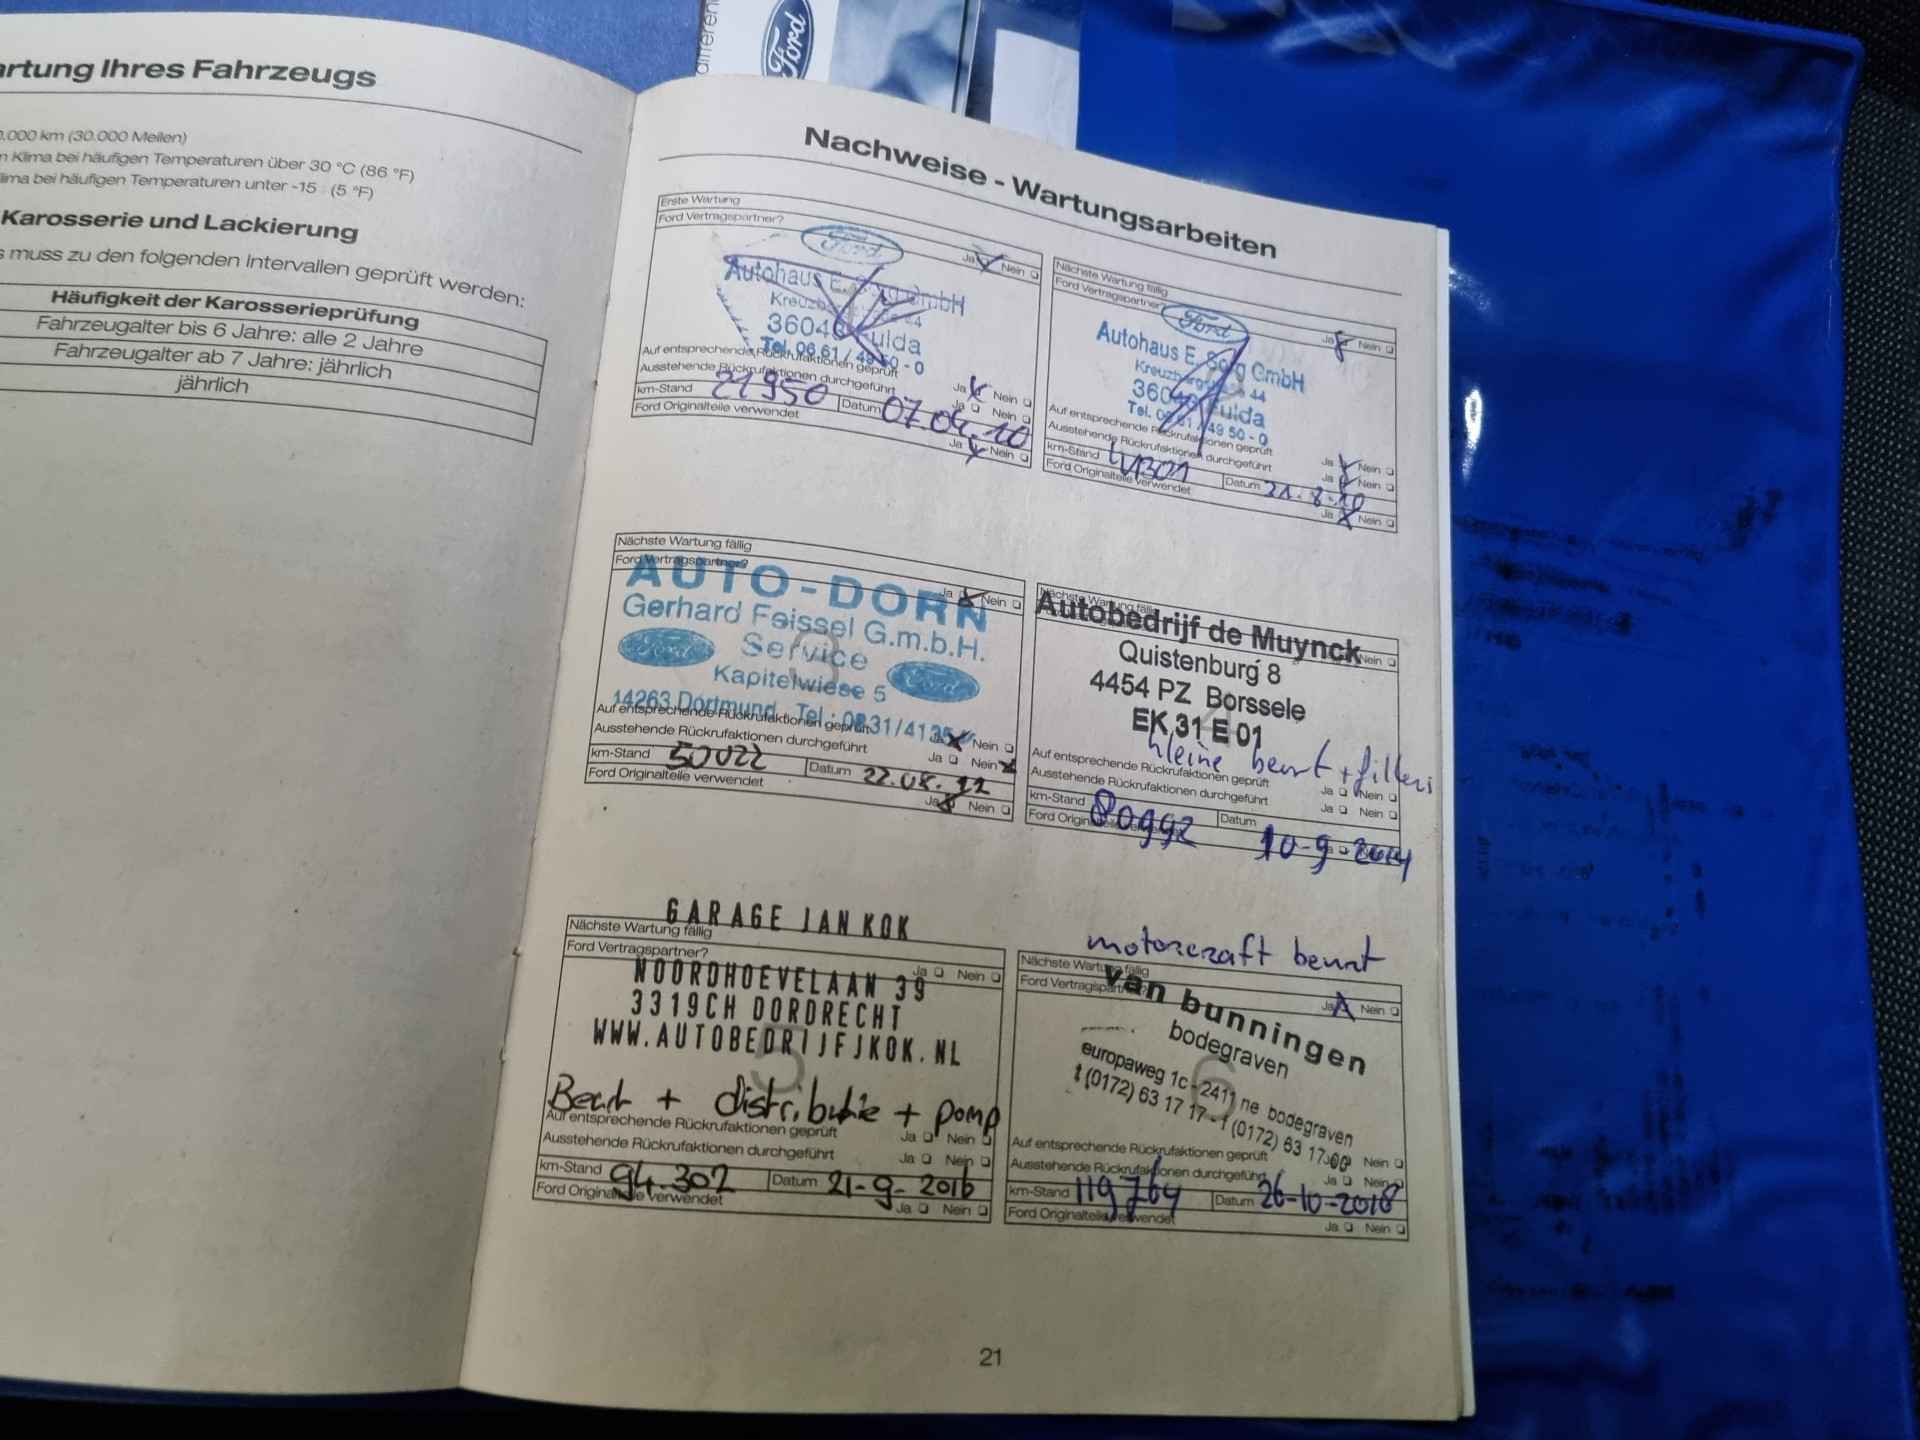 artung Ihres Fahrzeugs
0.000 km (30.000 Meilen)
n Klima bei häufigen Temperaturen über 30 °C (86 °F)
lima bei häufigen Temperaturen unter -15 (5 °F)
Karosserie und Lackierung
s muss zu den folgenden Intervallen geprüft werden:
Häufigkeit der Karosserieprüfung
Fahrzeugalter bis 6 Jahre: alle 2 Jahre
Fahrzeugalter ab 7 Jahre: jährlich
jährlich
Ford
Nachweise - Wartungsarbeiten
Erste Wartung
Ford Vertragspartner?
Ja Nein
Ford
Autohaus E. Sorg GmbH
44
36040 Fulda
Tel. 06 61 / 49 50 - 0
Auf entsprechende Rückrufaktionen geprüft
Ja Nein
Ausstehende Rückrufaktionen durchgeführt
Ja Nein
km-Stand 21950 Datum 07.04.10
Ford Originalteile verwendet
Ja Nein
Nächste Wartung fällig
Ford Vertragspartner?
Ja Nein
Ford
Autohaus E. Sorg GmbH
44
36040 Fulda
Tel. 06 61 / 49 50 - 0
Auf entsprechende Rückrufaktionen geprüft
Ja Nein
Ausstehende Rückrufaktionen durchgeführt
Ja Nein
km-Stand Datum
Ford Originalteile verwendet
Ja Nein
Nächste Wartung fällig
Ford Vertragspartner?
Ja Nein
AUTO-DORN
Gerhard Feissel G.m.b.H.
Ford Service Ford
Kapitelwiese 5
14263 Dortmund Tel.: 0231/4135
3
Auf entsprechende Rückrufaktionen geprüft
Ja Nein
Ausstehende Rückrufaktionen durchgeführt
Ja Nein
km-Stand 50022 Datum 22.08.12
Ford Originalteile verwendet
Ja Nein
Nächste Wartung fällig
Autobedrijf de Muynck
Nein
Quistenburg 8
4454 PZ Borssele
EK 31 E 01
4
kleine beurt + filters
Auf entsprechende Rückrufaktionen geprüft
Ja Nein
Ausstehende Rückrufaktionen durchgeführt
Ja Nein
km-Stand 80992 Datum 10-9-2014
Ford Originalteile verwendet
GARAGE JAN KOK
Nächste Wartung fällig
Ford Vertragspartner?
Ja Nein
NOORDHOEVELAAN 39
3319CH DORDRECHT
WWW.AUTOBEDRIJFJKOK.NL
5
Beurt + distributie + pomp
Auf entsprechende Rückrufaktionen geprüft
Ja Nein
Ausstehende Rückrufaktionen durchgeführt
Ja Nein
km-Stand 94.302 Datum 21-9-2016
Ford Originalteile verwendet
Ja Nein
motorcraft beurt
Nächste Wartung fällig
Ford Vertragspartner?
Ja Nein
van bunningen
bodegraven
europaweg 1c - 2411 ne bodegraven
t (0172) 63 17 17 - f (0172) 63 17 00
6
Auf entsprechende Rückrufaktionen geprüft
Nein
Ausstehende Rückrufaktionen durchgeführt
Ja Nein
km-Stand 119764 Datum 26-10-2018
Ford Originalteile verwendet
Ja Nein
21